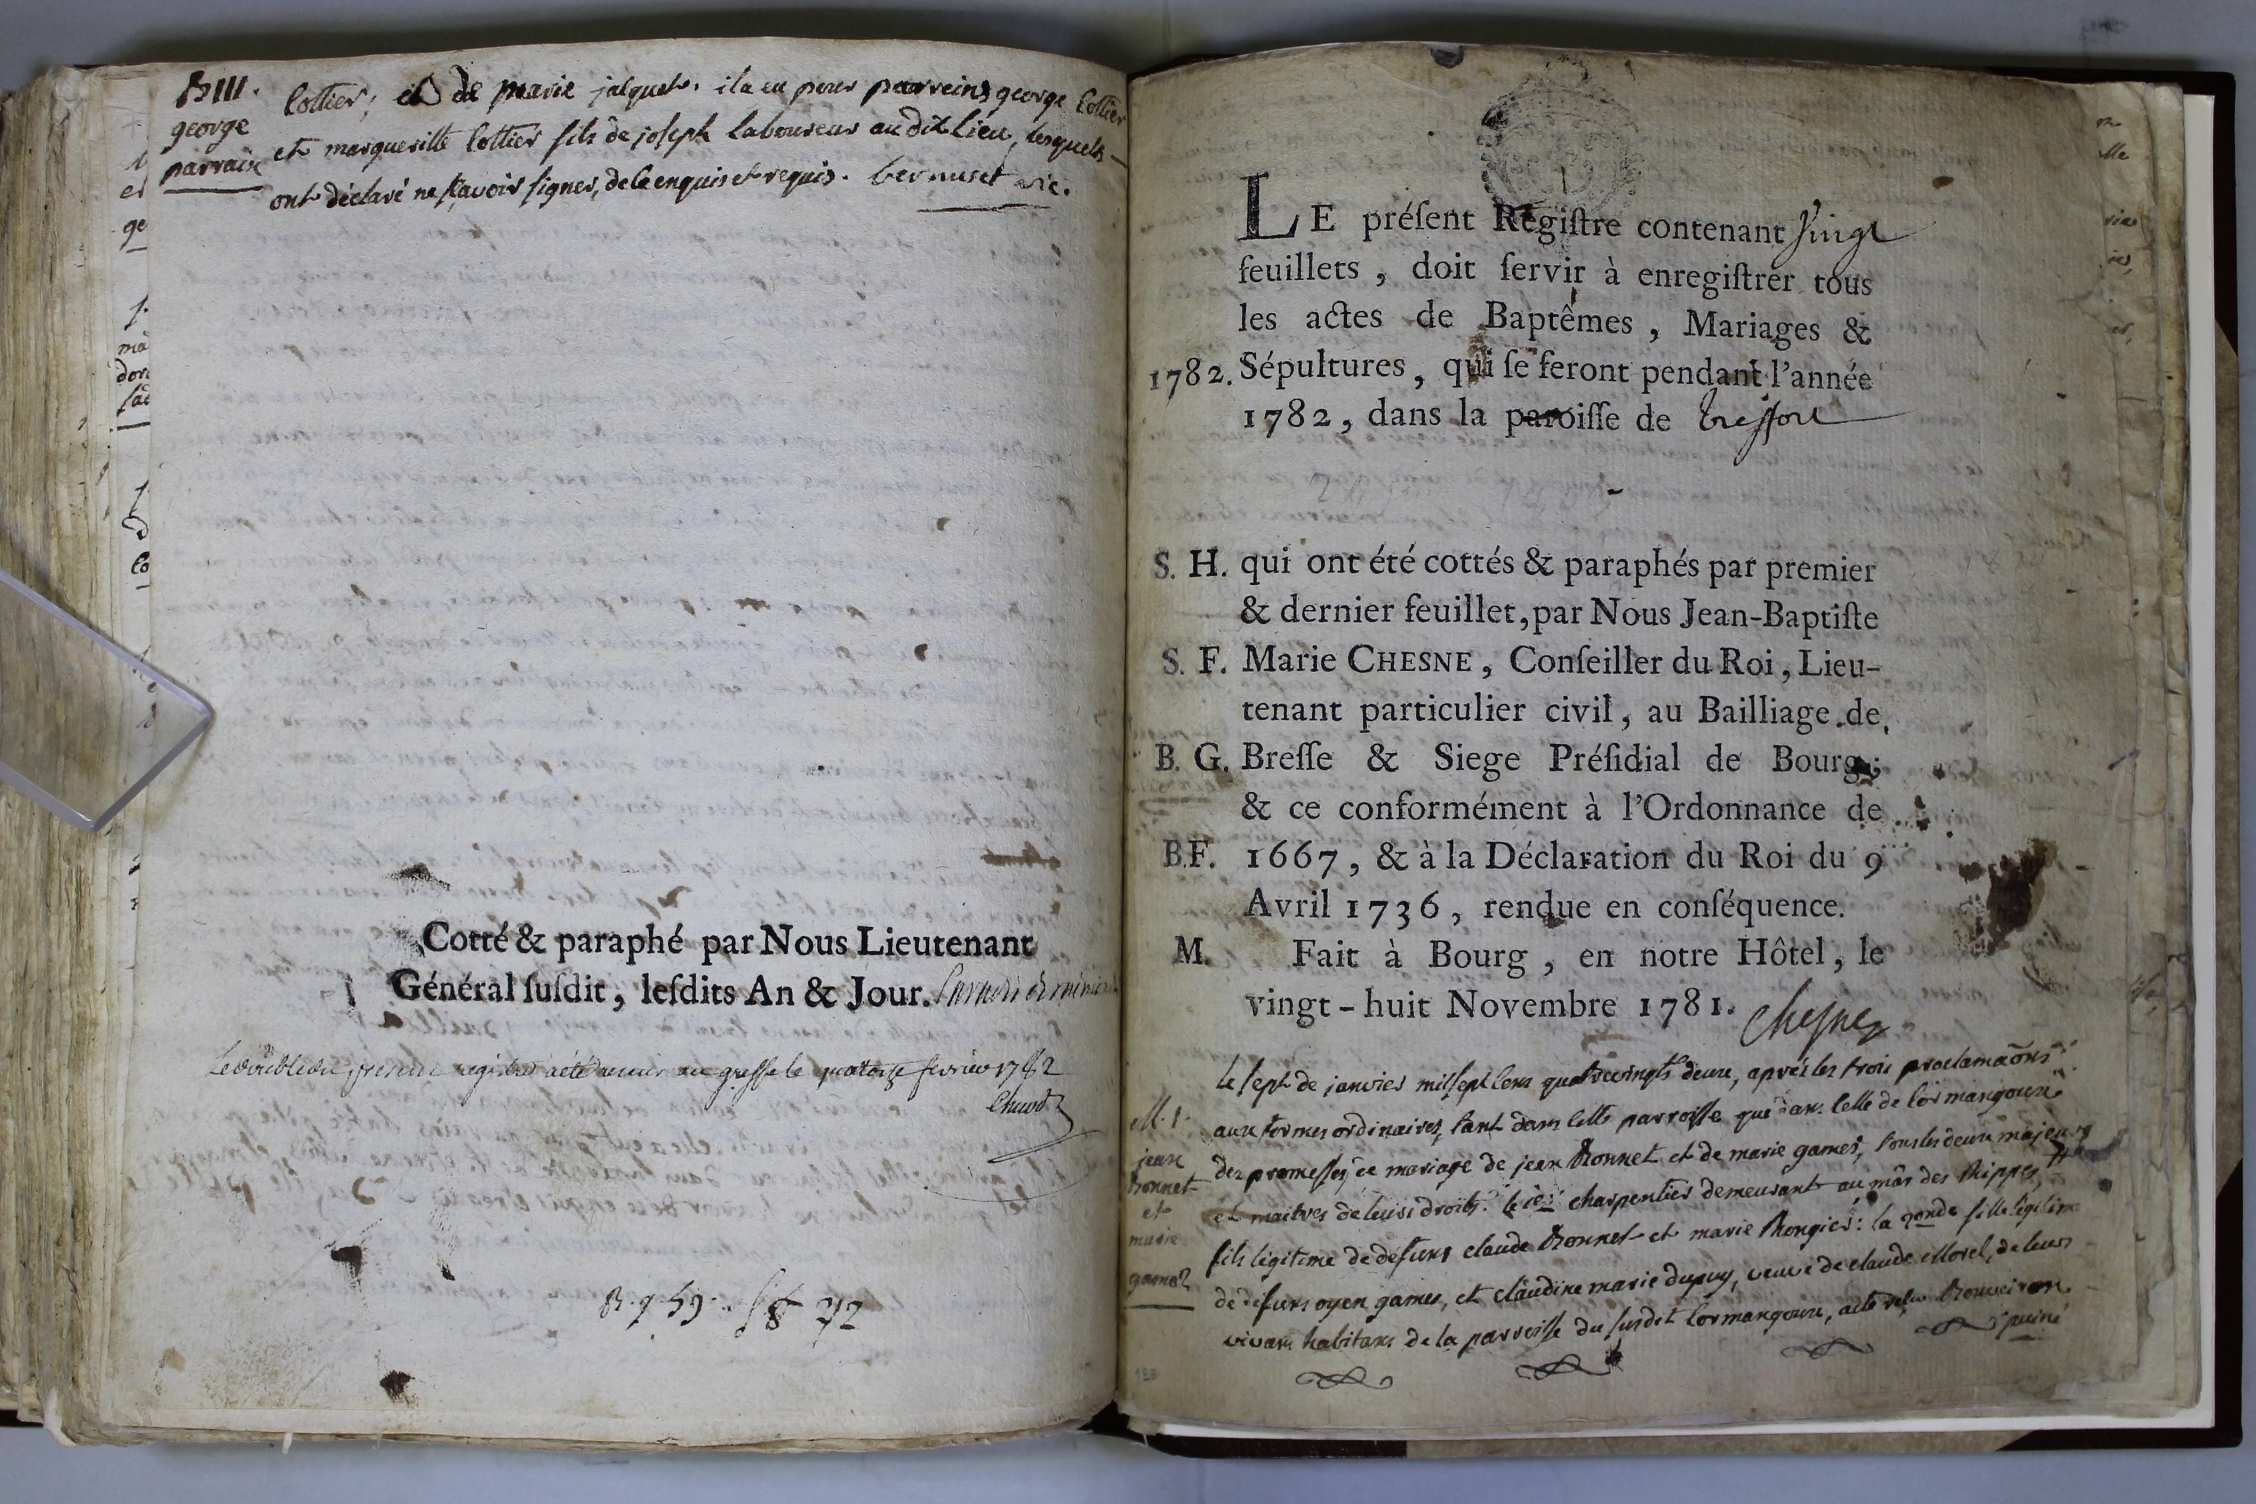 B111.
george
parrain
Cottier, et de marie jalquet. il a eu pour parreins george Cottier
et margueritte Cottier fils de joseph laboureur au dit lieu, lesquels
ont déclaré ne sçavoir signer, de ce enquis et requis. bernuset vic.
Cotté & paraphé par Nous Lieutenant
Général ſuſdit, leſdits An & Jour.
Le double du présent registre a été remis au greffe le quatorze fevrier 1782
Chuod
LE préſent Regiſtre contenant vingt
feuillets, doit ſervir à enregiſtrer tous
les actes de Baptêmes, Mariages &
1782. Sépultures, qui ſe feront pendant l'année
1782, dans la paroiſſe de treffort
S. H. qui ont été cottés & paraphés par premier
& dernier feuillet, par Nous Jean-Baptiſte
S. F. Marie CHESNE, Conſeiller du Roi, Lieu-
tenant particulier civil, au Bailliage de
B. G. Breſſe & Siege Préſidial de Bourg;
& ce conformément à l'Ordonnance de
B.F. 1667, & à la Déclaration du Roi du 9
Avril 1736, rendue en conſéquence.
M. Fait à Bourg, en notre Hôtel, le
vingt-huit Novembre 1781. Chesne
M. 1.
jean
bonnet
et
marie
gamet
Le sept de janvier mil sept cens quatrevingts deux, aprés les trois proclamaõns
aux formes ordinaires, tant dans cette parroisse que dans celle de Cormangoux
des promesses de mariage de jean bonnet et de marie gamet, tous les deux majeurs
et maitres de leurs droits: le 1er charpentier demeurant au mâs des Rippes,
fils légitime de défunts claude bonnet et marie Rongier: la 2onde fille légitime
de défunt oyen gamet, et claudine marie dupuy, veuve de claude Morel, de leur
vivant habitans de la parroisse du susdit Cormangoux, acte reçu bouveiron
puiné